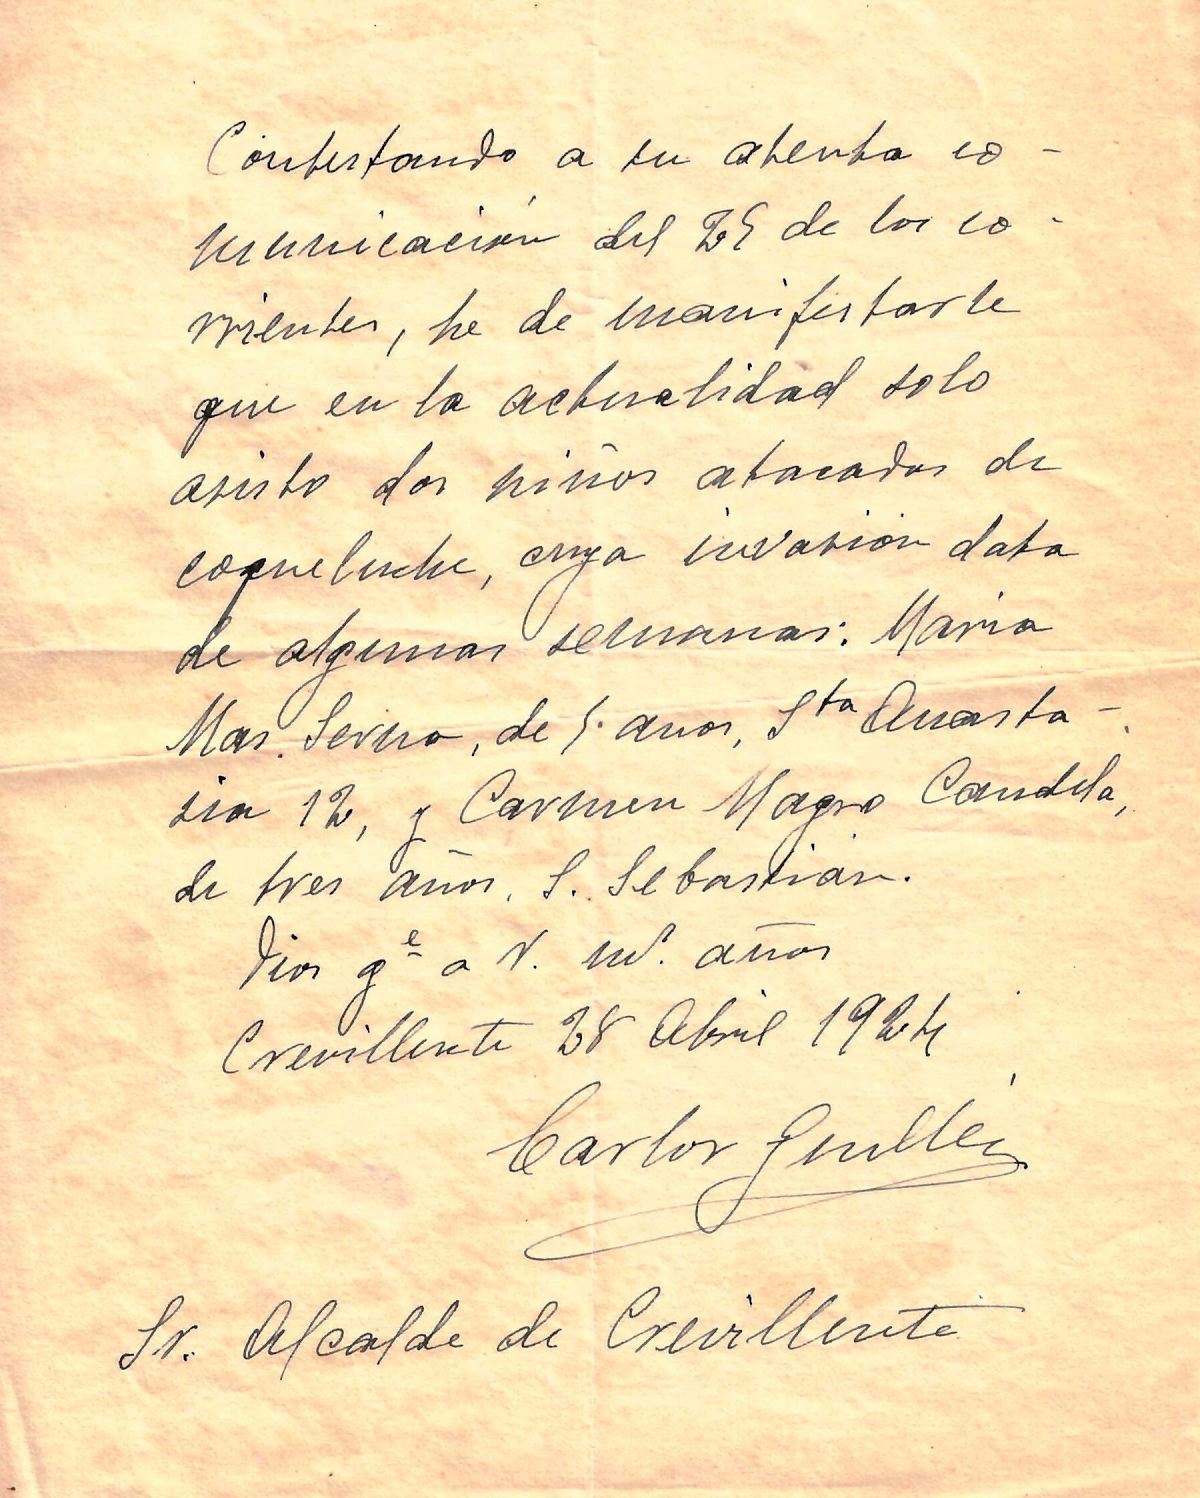 Contestando a su atenta co-
municación del 25 de los co-
rrientes, he de manifestarle
que en la actualidad solo
asisto dos niños atacados de
coqueluche, cuya invasión data
de algunas semanas: Maria
Mas Serna, de 5 años, Sta Anasta-
sia 12, y Carmen Magro Candela,
de tres años, S. Sebastián.
Dios ge a V. ms. años
Crevillente 28 Abril 1924
Carlos Guillén
Sr. Alcalde de Crevillente